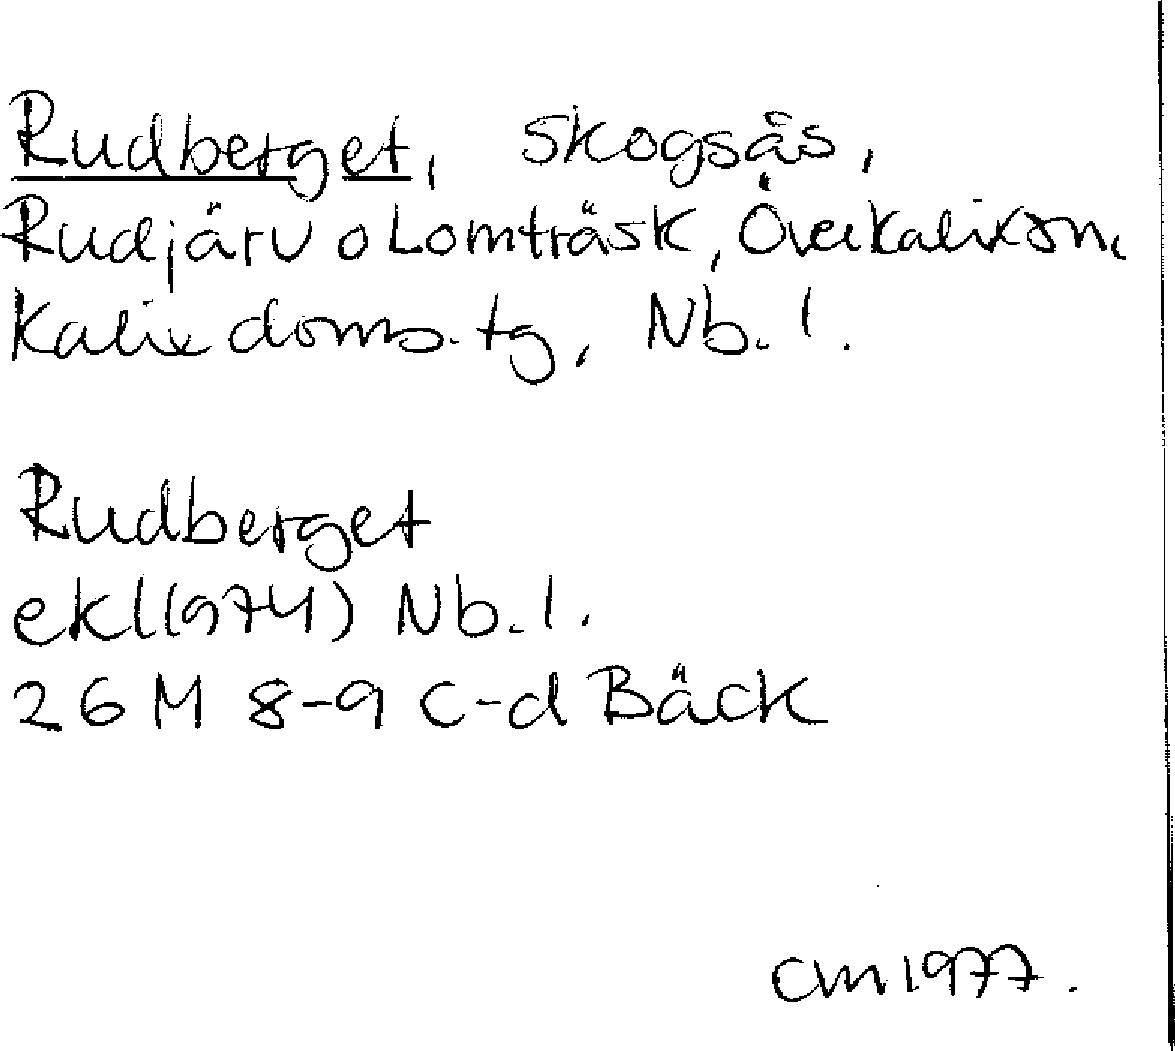 Rudberget, skogsås,
Rudjärv o Lomträsk, Överkalix sn,
Kalix doms. tg, Nb. l.
Rudberget
ekl(1974) Nb. l.
26 M 8-9 c-d Bäck
CM 1977.